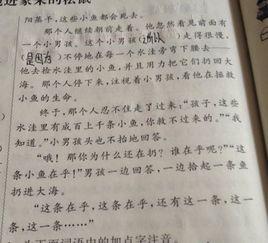 阳蒸干，这些小鱼都会死去。
那个人继续朝前走着。他忽然看见前面有
一个小男孩，这个小男孩（ ）走得很慢，
（是因为）不停地在每一个水洼旁弯下腰去——
他去捡水洼里的小鱼，并且用力把它们扔回大
海。那个人停下来，注视着小男孩，看他在拯救
小鱼的生命。
终于，那个人忍不住走了过来：“孩子，这些
水洼里有成百上千条小鱼，你救不过来的。”“我
知道。”小男孩头也不抬地回答。
“哦！那你为什么还在扔？谁在乎呢？”“这
条小鱼在乎！”男孩一边回答，一边拾起一条鱼
扔进大海。
“这条在乎，这条在乎，还有这一条，这一
条，这一条……”
下面词语中的加点字注音。